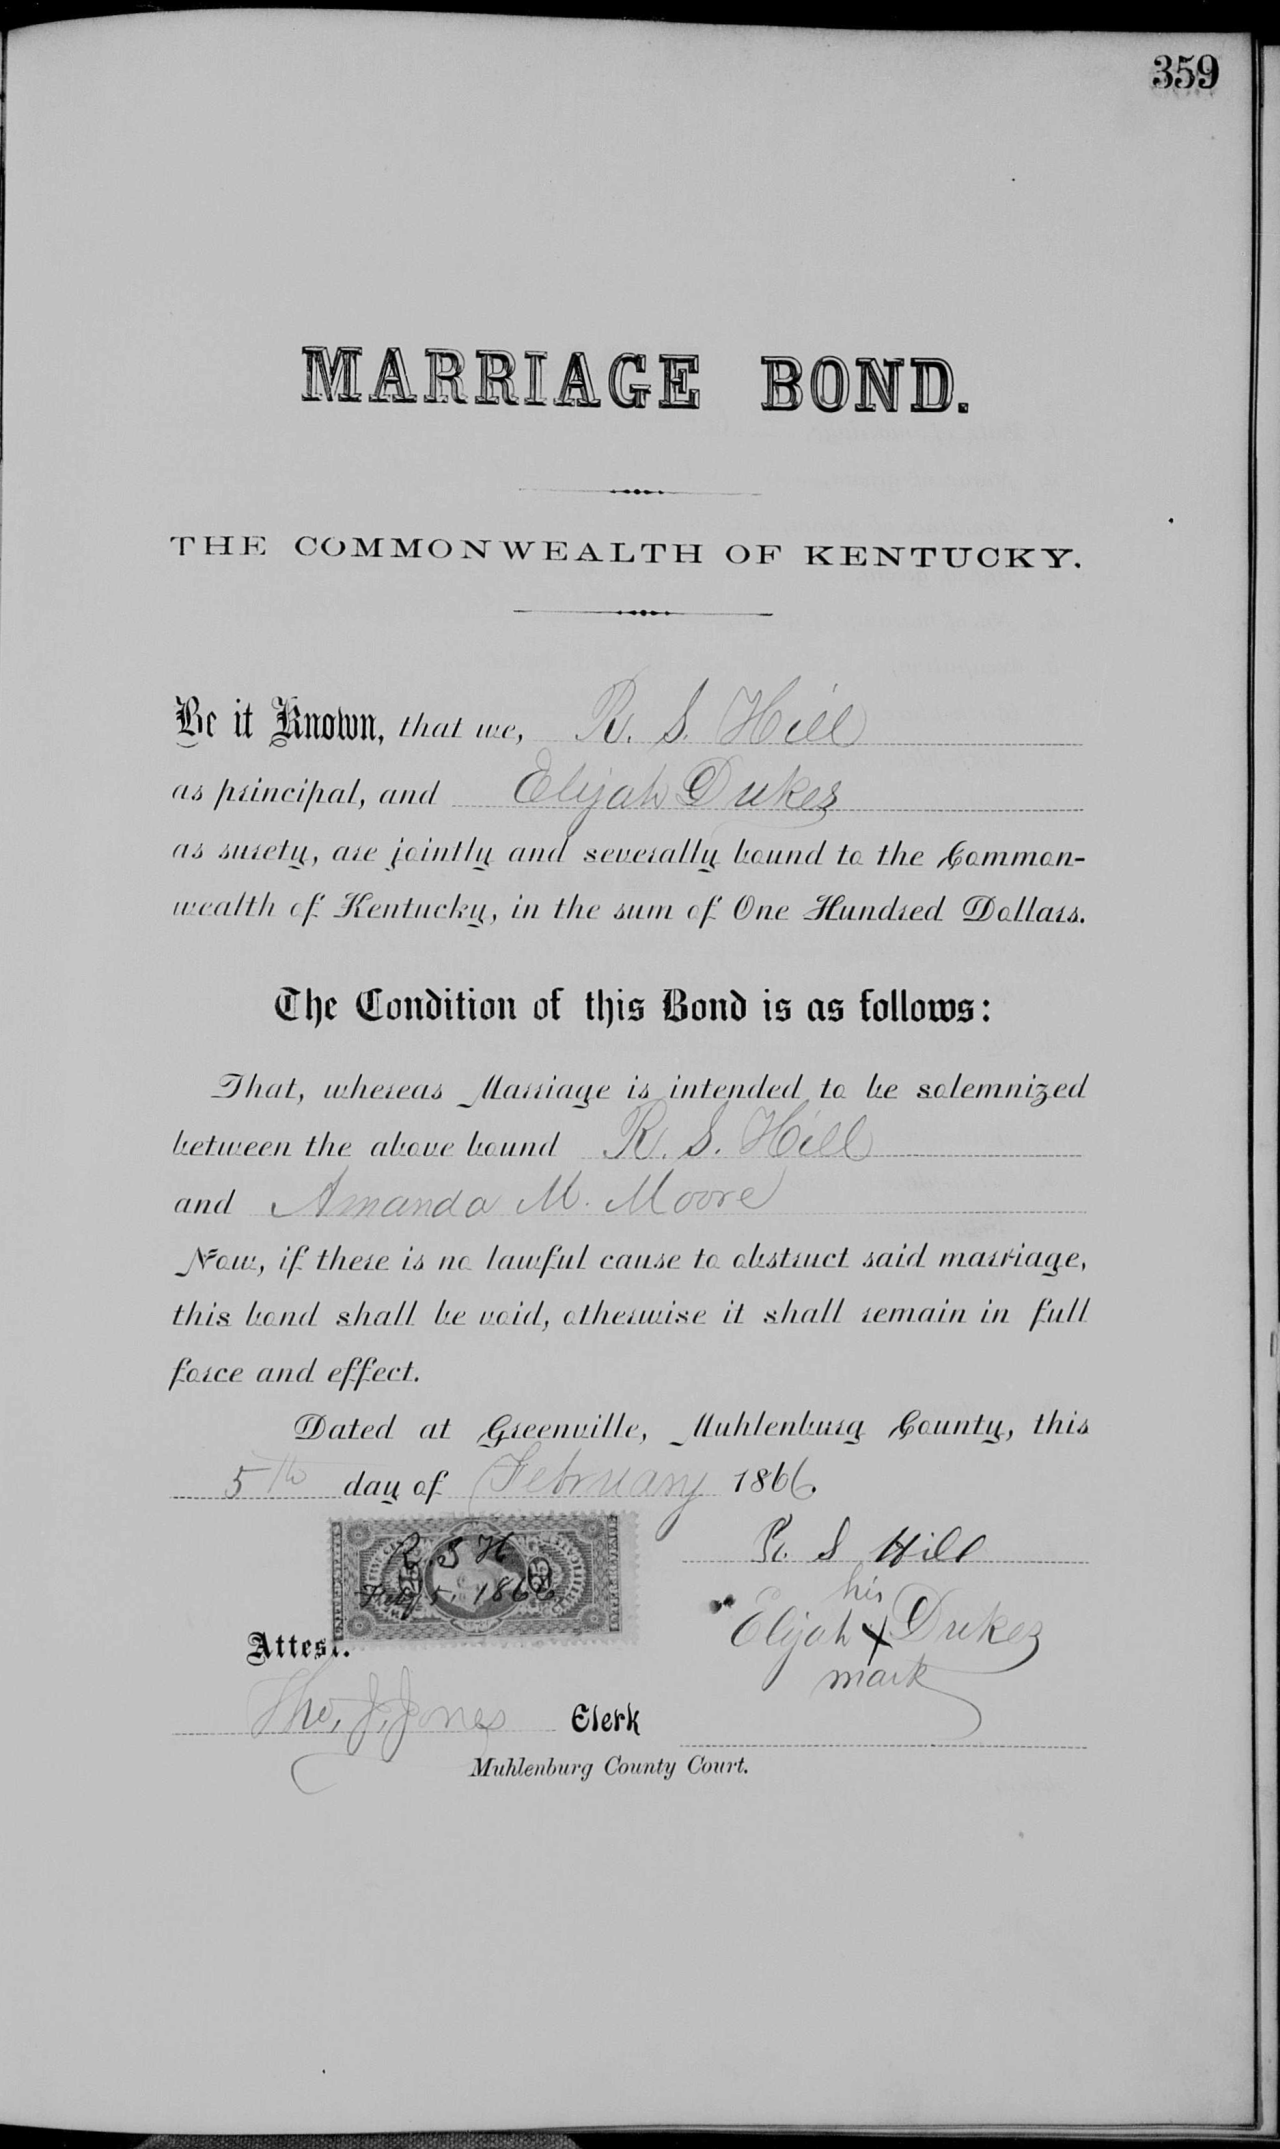 359
MARRIAGE BOND.
THE COMMONWEALTH OF KENTUCKY.
Be it Known, that we, R. S. Hill
as principal, and Elijah Dukes
as surety, are jointly and severally bound to the Common-
wealth of Kentucky, in the sum of One Hundred Dollars.
The Condition of this Bond is as follows:
That, whereas Marriage is intended to be solemnized
between the above bound R. S. Hill
and Amanda M. Moore
Now, if there is no lawful cause to obstruct said marriage,
this bond shall be void, otherwise it shall remain in full
force and effect.
Dated at Greenville, Muhlenburg County, this
5th day of February 1866.
R. S. H
Feby 5, 1866
R. S Hill
his
Elijah X Dukes
mark
Attest.
Tho, J, Jones Clerk
Muhlenburg County Court.